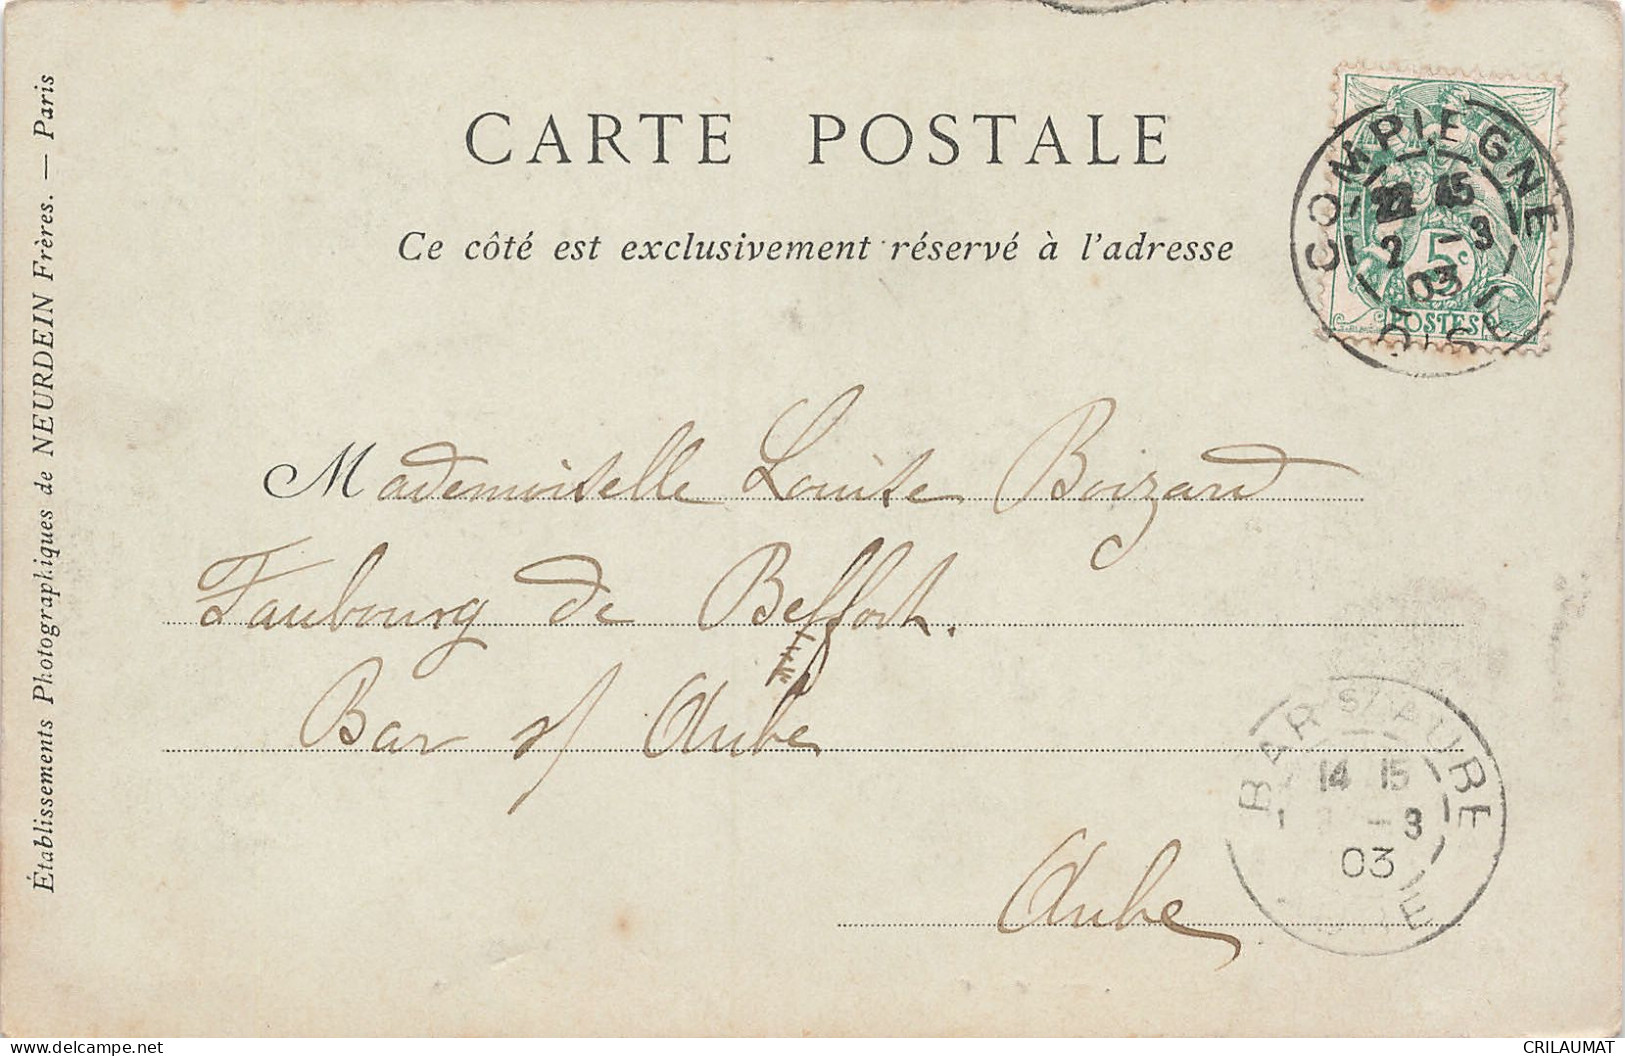 CARTE POSTALE
Ce côté est exclusivement réservé à l'adresse
Établissements Photographiques de NEURDEIN Frères. — Paris
COMPIEGNE
22 45
2 -3
03
OISE
5c
POSTES
Mademoiselle Louise Boizard
Faubourg de Belfort.
Bar s/ Aube
Aube
BAR S/ AUBE
14 15
-3
03
delcampe.net
CRILAUMAT